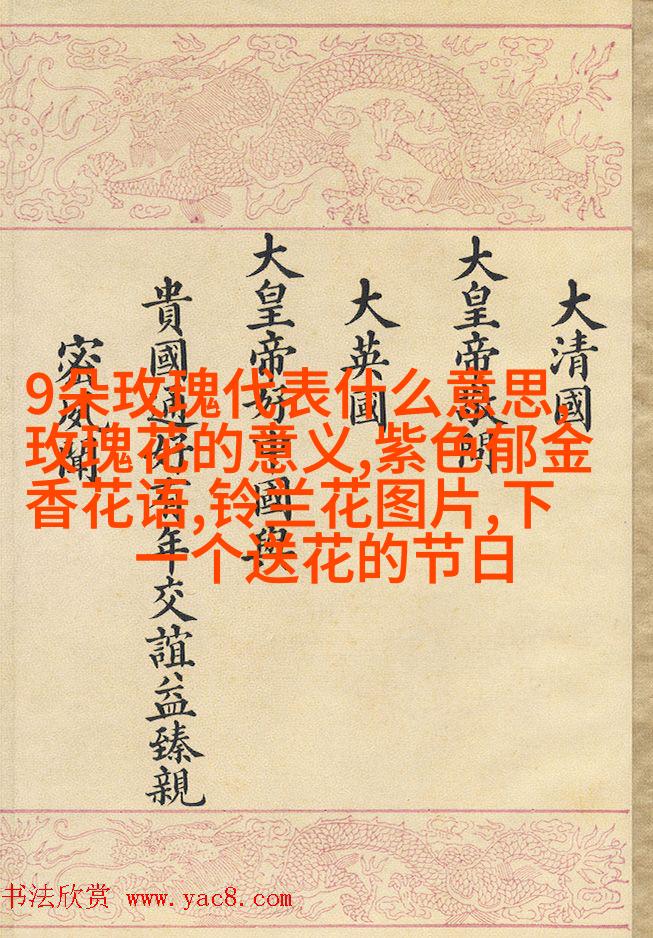 大清國
大皇帝敬問
大英國
大皇帝好中國與
貴國通好有年交誼益臻親
密夙聞
9朵玫瑰代表什么意思,
玫瑰花的意义,紫色郁金
香花语,铃兰花图片,下
一个送花的节日
书法欣赏 www.yac8.com